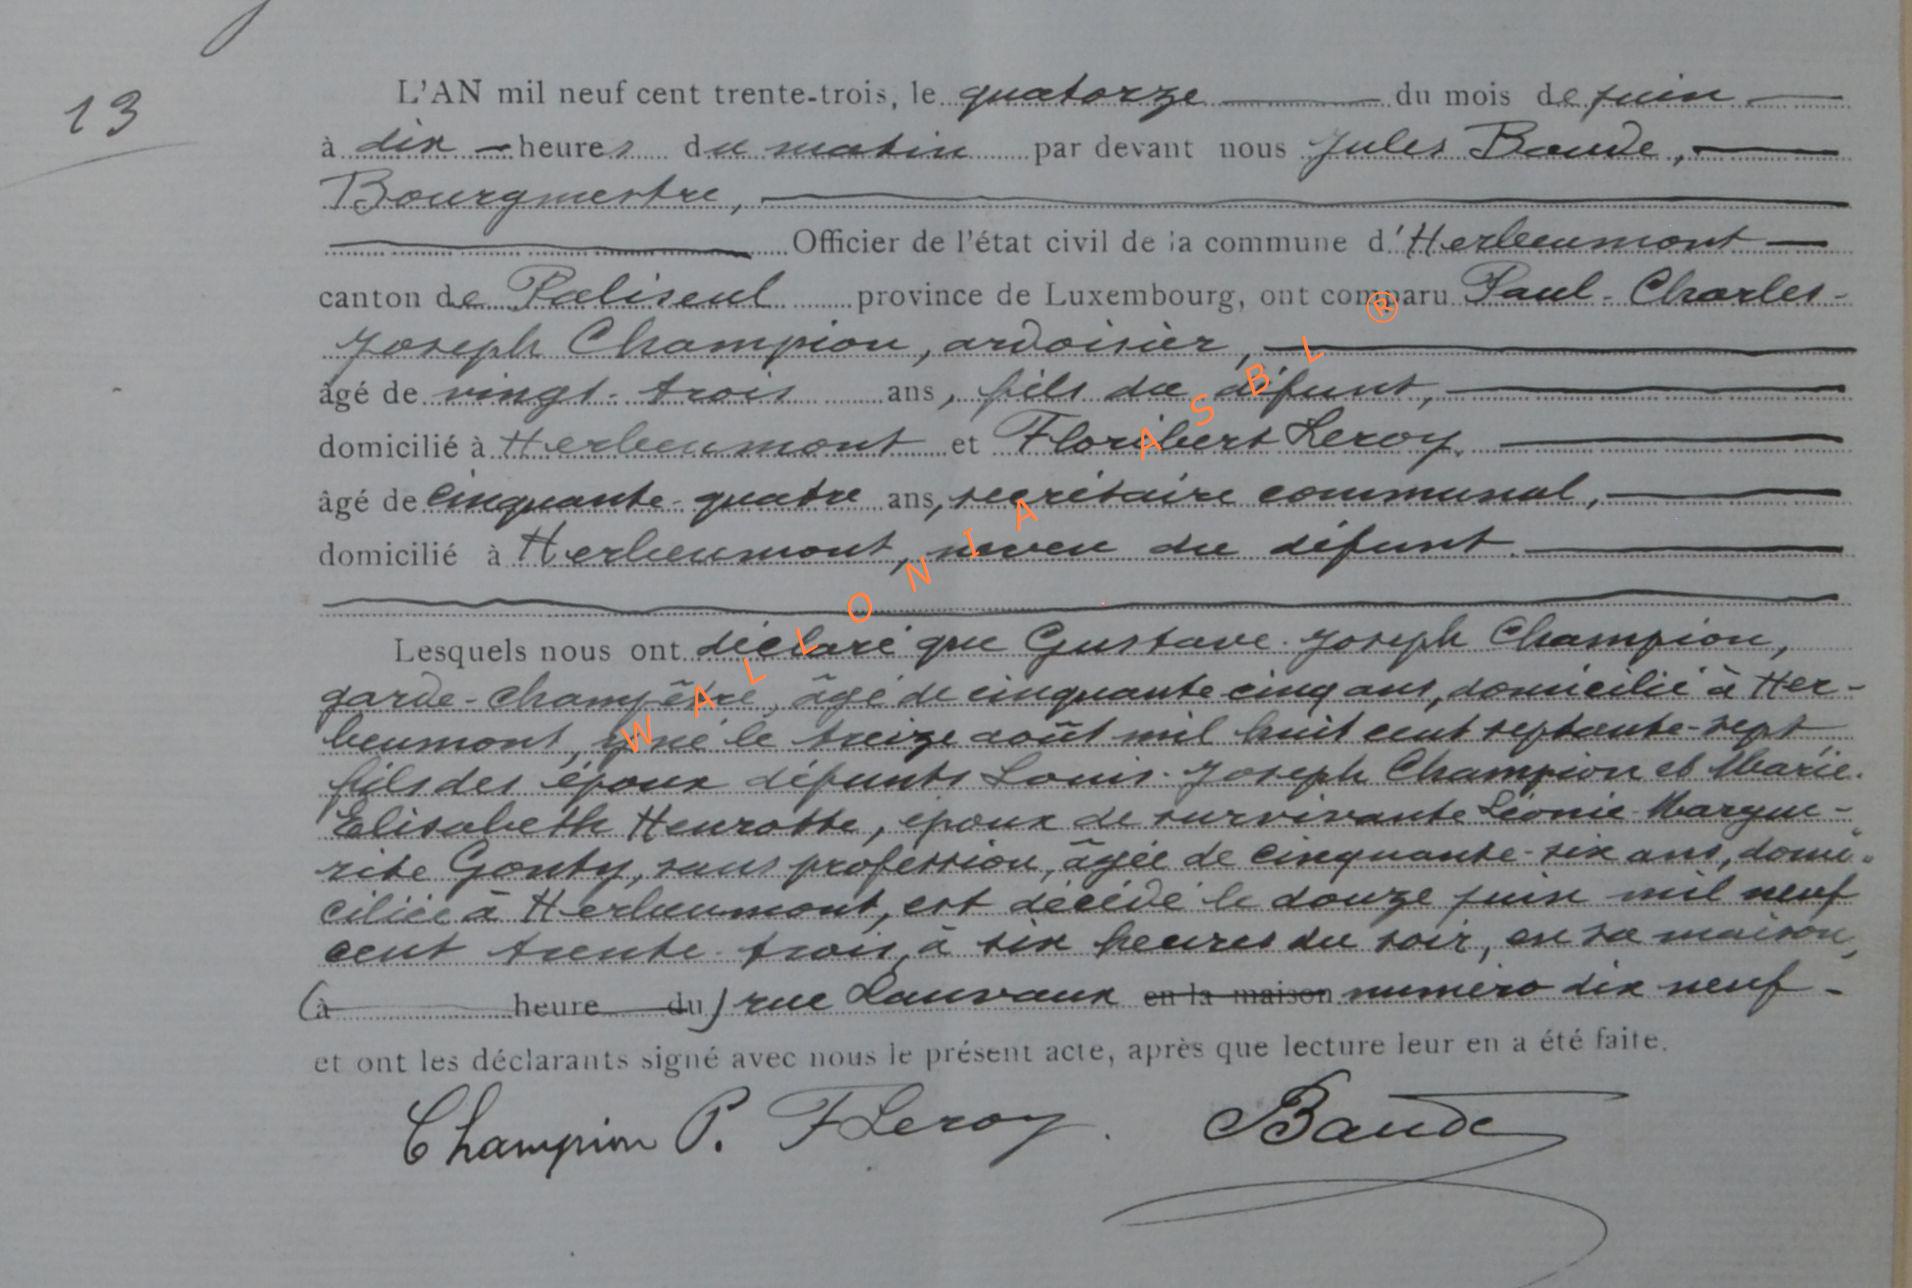 13
L'AN mil neuf cent trente-trois, le quatorze du mois de juin
à dix heures du matin par devant nous Jules Baude,
Bourgmestre,
Officier de l'état civil de la commune d'Herbeumont
canton de Paliseul province de Luxembourg, ont comparu Paul-Charles-
Joseph Champion, ardoisier,
âgé de vingt-trois ans, fils du défunt,
domicilié à Herbeumont et Floribert Leroy,
âgé de cinquante-quatre ans, secrétaire communal,
domicilié à Herbeumont, neveu du défunt.
Lesquels nous ont déclaré que Gustave-Joseph Champion,
garde-champêtre, âgé de cinquante cinq ans, domicilié à Her-
beumont, y né le treize août mil huit cent septante-sept
fils des époux défunts Louis-Joseph Champion et Marie-
Elisabeth Henrotte, époux de survivante Léonie-Margue-
rite Gonty, sans profession, âgée de cinquante-six ans, domi-
ciliée à Herbeumont, est décédé le douze juin mil neuf
cent trente-trois, à six heures du soir, en sa maison,
(à heure du) rue Lauvaux en la maison numéro dix neuf -
et ont les déclarants signé avec nous le présent acte, après que lecture leur en a été faite.
Champion P. F Leroy. Baude
WALLONIA ASBL ®